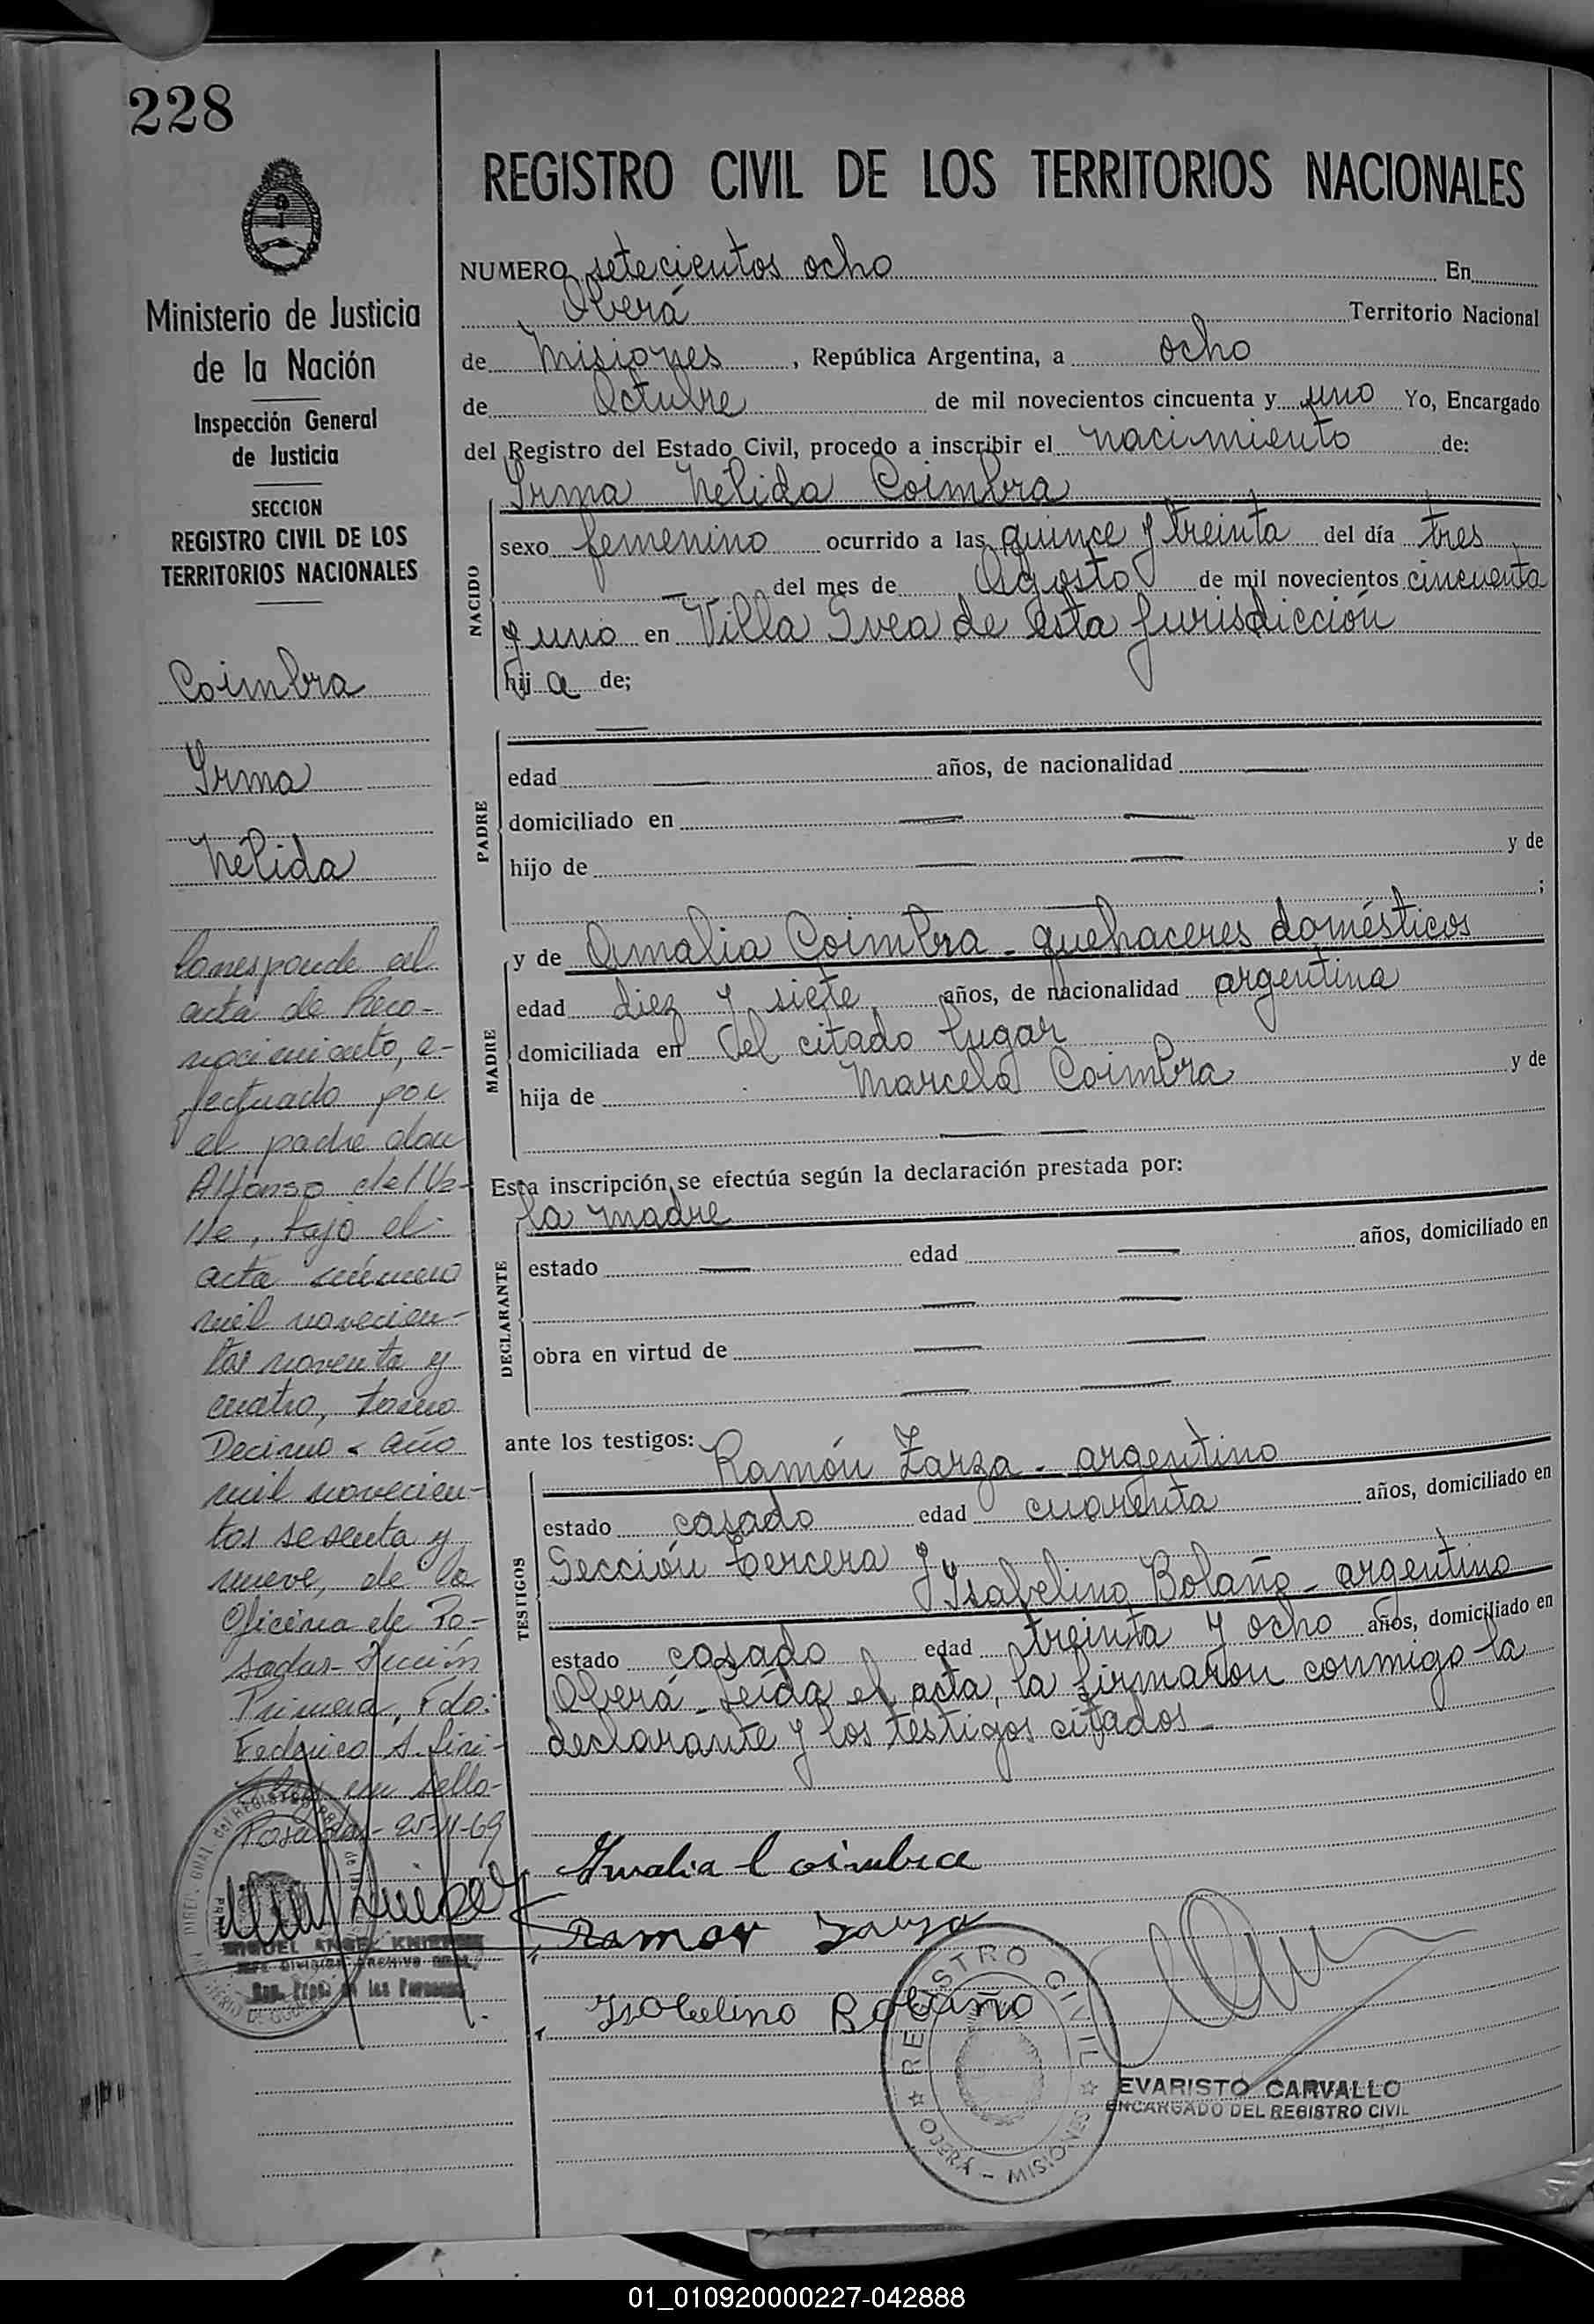 228
Ministerio de Justicia
de la Nación
Inspección General
de Justicia
SECCION
REGISTRO CIVIL DE LOS
TERRITORIOS NACIONALES
Coimbra
Irma
Nélida
Corresponde al
acta de Reco-
nocimiento, e-
fectuado por
el padre don
Alfonso del Va-
lle, bajo el
acta número
mil novecien-
tos noventa y
cuatro, tomo
Decimo - año
mil novecien-
tos sesenta y
nueve, de la
Oficina de Po-
sadas - Sección
Primera, Fdo:
Federico A.
un sello-
Posadas - 25-11-69
MIGUEL ANGEL
JEFE DIVISION ARCHIVO GRAL,
de las Personas
REGISTRO CIVIL DE LOS TERRITORIOS NACIONALES
NUMERO setecientos ocho En
Oberá Territorio Nacional
de Misiones, República Argentina, a ocho
de Octubre de mil novecientos cincuenta y uno Yo, Encargado
del Registro del Estado Civil, procedo a inscribir el nacimiento de:
Irma Nélida Coimbra
NACIDO
sexo femenino ocurrido a las quince y treinta del día tres
del mes de Agosto de mil novecientos cincuenta
y uno en Villa Svea de esta jurisdicción
hij a de;
PADRE
edad años, de nacionalidad
domiciliado en
hijo de y de
;
MADRE
y de Amalia Coimbra - quehaceres domésticos
edad diez y siete años, de nacionalidad argentina
domiciliada en el citado lugar
hija de Marcela Coimbra y de
Esta inscripción se efectúa según la declaración prestada por:
la madre
DECLARANTE
estado edad años, domiciliado en
obra en virtud de
ante los testigos: Ramón Zarza - argentino
TESTIGOS
estado casado edad cuarenta años, domiciliado en
Sección tercera y
Isabelino Bolaño - argentino
estado casado edad treinta y ocho años, domiciliado en
Oberá - Leída el acta, la firmaron conmigo la
declarante y los testigos citados -
Amalia Coimbra
Ramon Zarza
Isabelino Bolaño
REGISTRO CIVIL
OBERÁ - MISIONES
EVARISTO CARVALLO
ENCARGADO DEL REGISTRO CIVIL
01_010920000227-042888